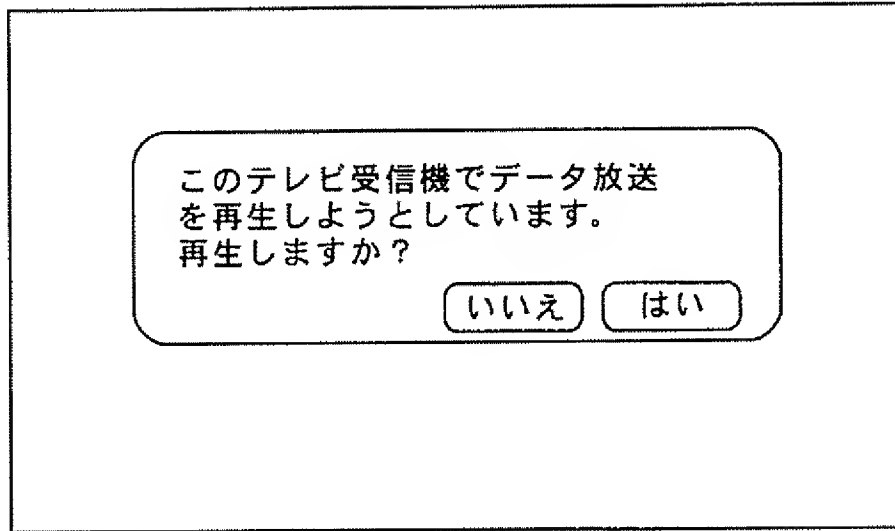 このテレビ受信機でデータ放送
を再生しようとしています。
再生しますか？
いいえ はい